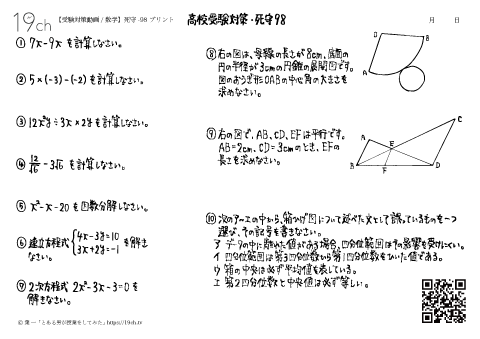 19ch 【受験対策動画/数学】死守-98 プリント 高校受験対策・死守98 月 日
① 7x-9x を計算しなさい。
② 5×(-3)-(-2) を計算しなさい。
③ 12x²y÷3x×2y を計算しなさい。
④ 12/√6 - 3√6 を計算しなさい。
⑤ x²-x-20 を因数分解しなさい。
⑥ 連立方程式 { 4x-3y=10
3x+2y=-1 を解きなさい。
⑦ 2次方程式 2x²-3x-3=0 を
解きなさい。
⑧ 右の図は、母線の長さが8cm、底面の
円の半径が3cmの円錐の展開図です。
図のおうぎ形OABの中心角の大きさを
求めなさい。
O
B
A
⑨ 右の図で、AB、CD、EFは平行です。
AB=2cm、CD=3cmのとき、EFの
長さを求めなさい。
C
A
E
B F D
⑩ 次のア〜エの中から、箱ひげ図について述べた文として誤っているものを一つ
選び、その記号を書きなさい。
ア データの中に離れた値がある場合、四分位範囲はその影響を受けにくい。
イ 四分位範囲は第3四分位数から第1四分位数をひいた値である。
ウ 箱の中央は必ず平均値を表している。
エ 第2四分位数と中央値は必ず等しい。
© 葉一「とある男が授業をしてみた」https://19ch.tv